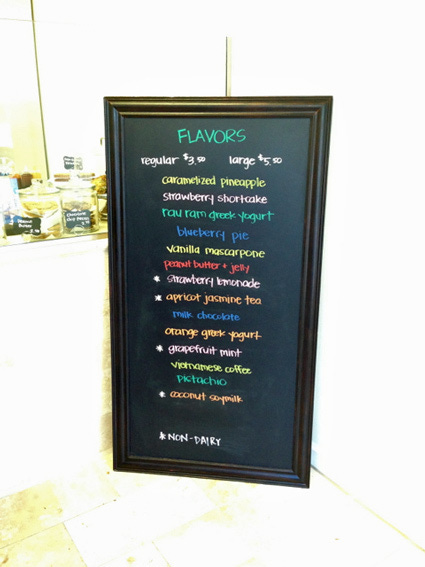 FLAVORS
regular $3.50 large $5.50
caramelized pineapple
strawberry shortcake
rau ram greek yogurt
blueberry pie
vanilla mascarpone
peanut butter + jelly
* strawberry lemonade
* apricot jasmine tea
milk chocolate
orange greek yogurt
* grapefruit mint
vietnamese coffee
pistachio
* coconut soymilk
* NON-DAIRY